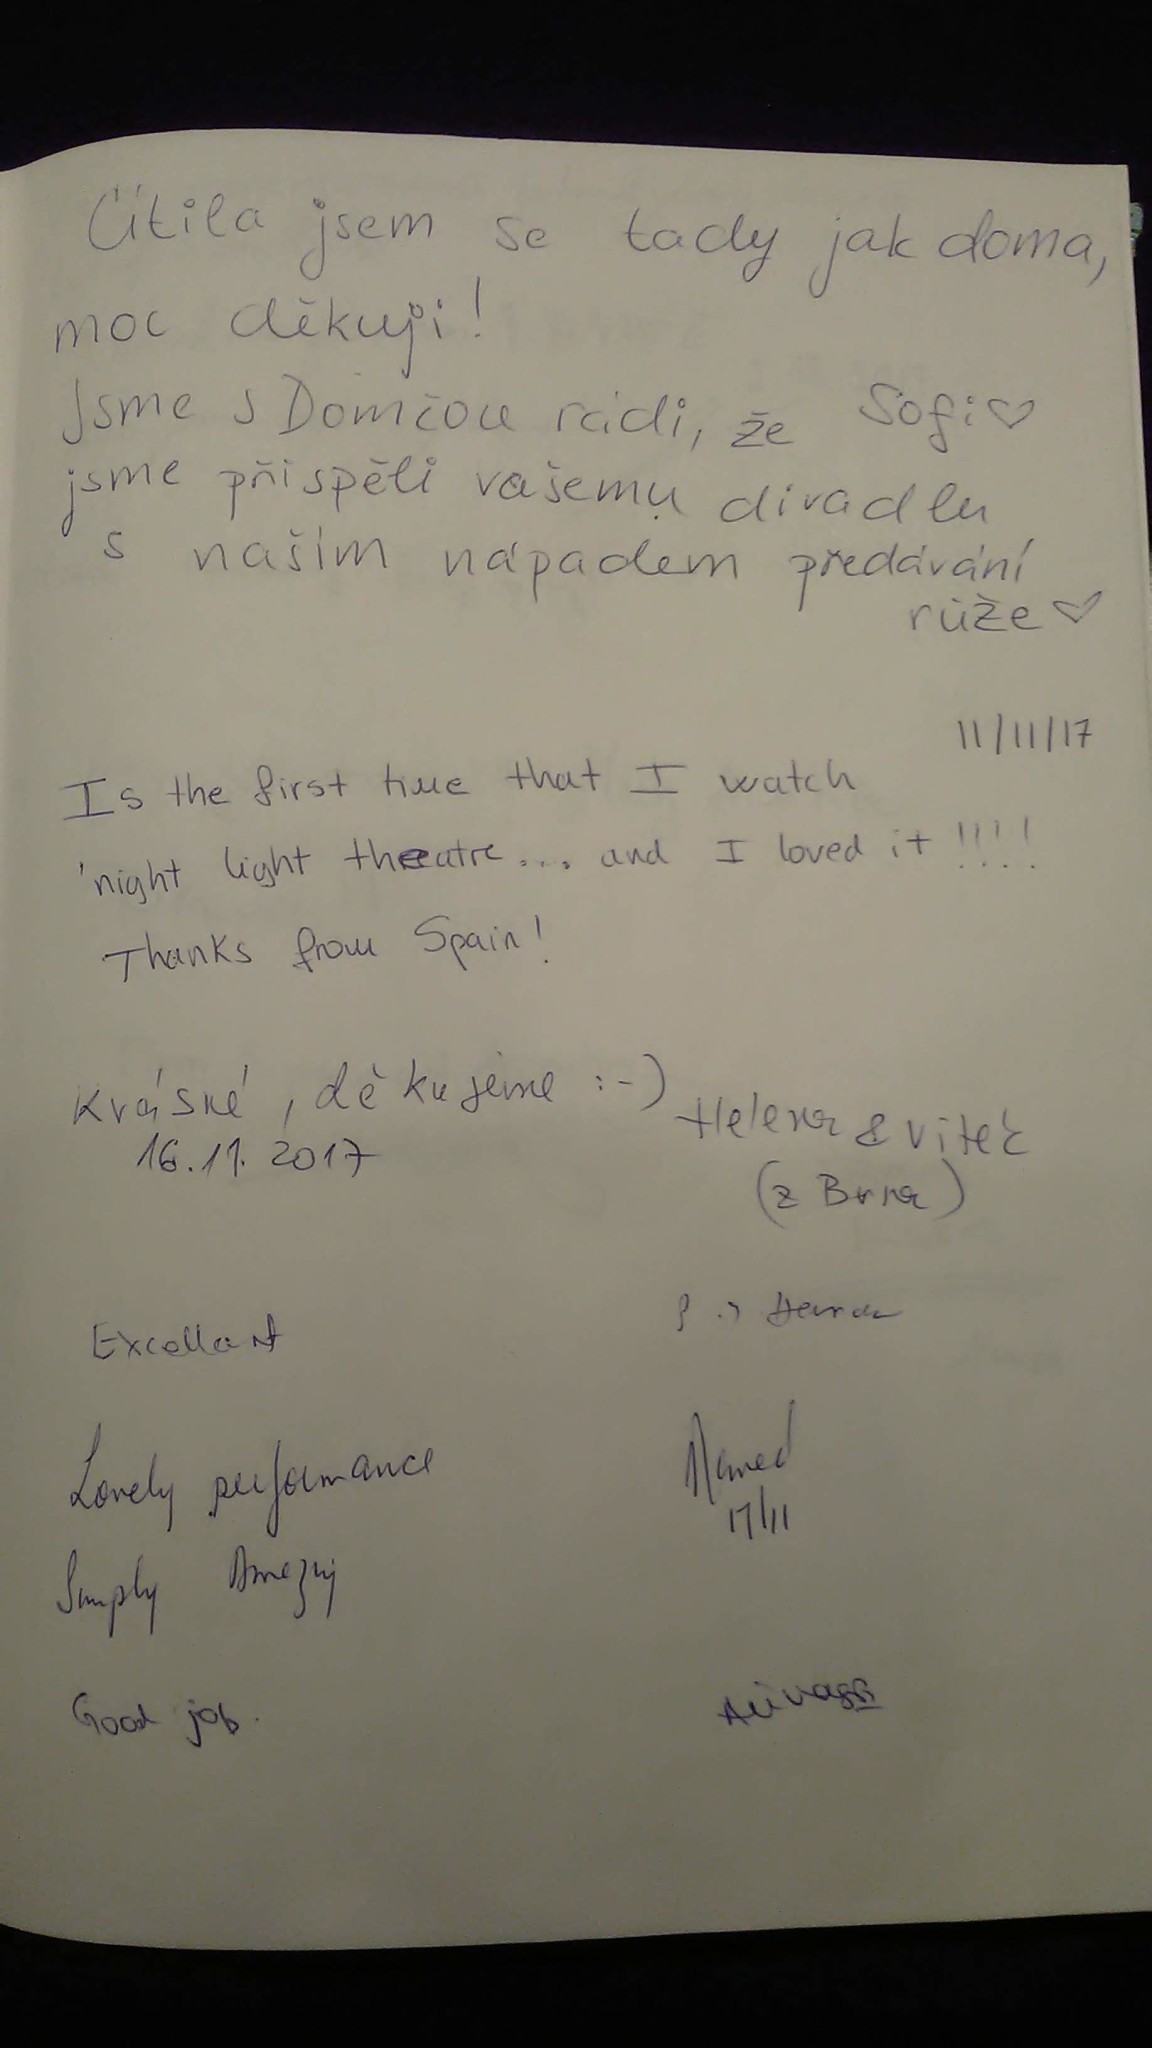 Cítila jsem se tady jak doma,
moc děkuji!
Sofi♡
Jsme s Domčou rádi, že
jsme přispěli vašemu divadlu
s naším nápadem předávání
růže♡
11/11/17
Is the first time that I watch
'night light theatre... and I loved it!!!!
Thanks from Spain!
Krásné, děkujeme :-)
16.11.2017
Helena & Vítek
(z Brna)
Excellant
Lovely performance
17/11
Simply Amazing
Good job.